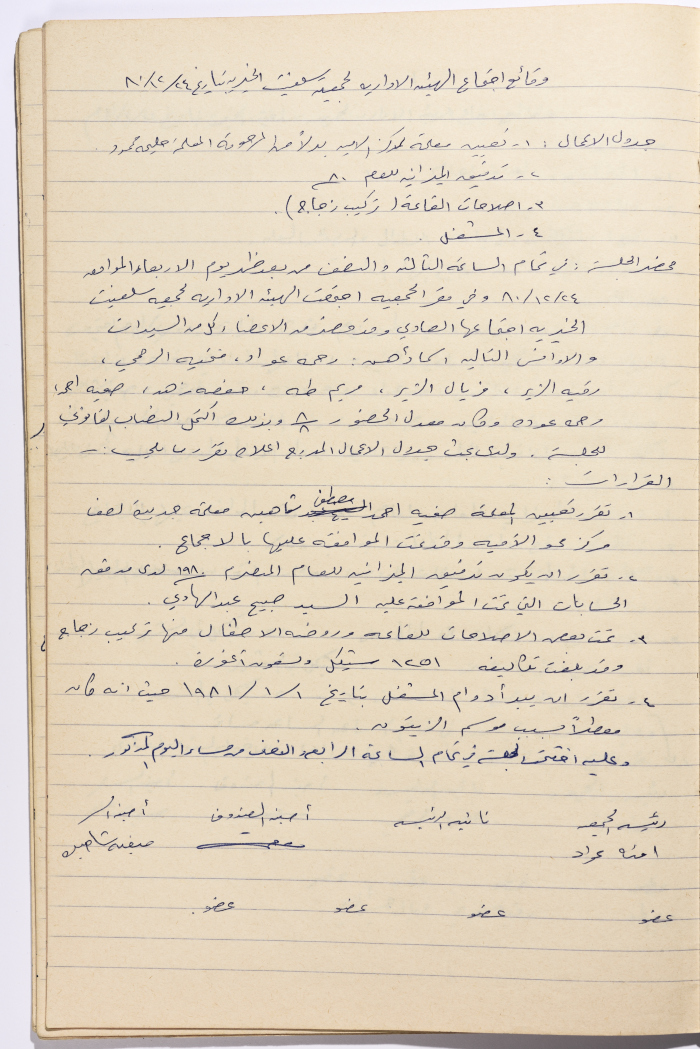 وقائع اجتماع الهيئة الادارية لجمعية سلفيت الخيرية بتاريخ ٨٠/١٢/٢٤
جدول الاعمال : ١- تعيين معلمة لمركز الامية بدلاً من المرحومة المعلمة حليمة
٢- تدقيق الميزانيه للعام ٨٠
٣- اصلاحات القاعة ( تركيب زجاج ) .
٤- المشغل .
محضر الجلسة : في تمام الساعة الثالثة والنصف من بعد ظهر يوم الاربعاء الموافق
٨٠/١٢/٢٤ وفي مقر الجمعيه اجتمعت الهيئة الاداريه لجمعية سلفيت
الخيريه اجتماعها العادي وقد حضر من الاعضاء كل من السيدات
والاوانس التاليه اسماؤهن : رحمه عواد ، فتحيه الرحمي ،
رقيه الزير ، فريال الزير ، مريم طه ، حفصه زهد ، صفيه احمد
رحمه عوده وكان معدل الحضور ٨/٨ وبذلك اكتمل النصاب القانوني
للجلسة . ولدى بحث جدول الاعمال المدرج اعلاه تقرر ما يلي :-
القرارات :
١- تقرر تعيين المعلمة صفيه احمد مصطفى شاهين معلمة جديدة لصف
مركز محو الأميه وقد تمت الموافقة عليها بالاجماع .
٢- تقرر ان يكون تدقيق الميزانيه للعام المنصرم ١٩٨٠ لدى مدقق
الحسابات التي تمت الموافقة عليه السيد صبيح عبد الهادي .
٣- تمت بعض الاصلاحات للقاعه وروضه الاطفال منها تركيب زجاج
وقد بلغت تكاليفه ١٢٥١ شيكل وتسعون اغورة .
٤- تقرر ان يبدأ دوام المشغل بتاريخ ١٩٨١/١/١ حيث انه كان
معطلاً بسبب موسم الزيتون .
وعليه اختتمت الجلسة في تمام الساعة الرابعة والنصف من مساء اليوم المذكور .
رئيسة الجمعيه نائبة الرئيسه أمينة الصندوق أمينة السر
عواد شاهين
عضو عضو عضو عضو .